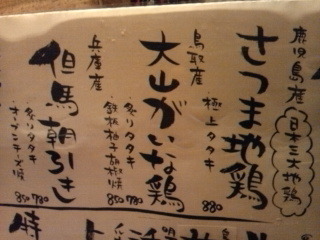 鹿児島産
日本三大地鶏
さつま地鶏
極上タタキ
880
鳥取産
大山がいな鶏
炙りタタキ 780
鉄板柚子胡椒焼 850
兵庫産
但馬朝引き
炙りタタキ 780
オーブンチーズ焼 850